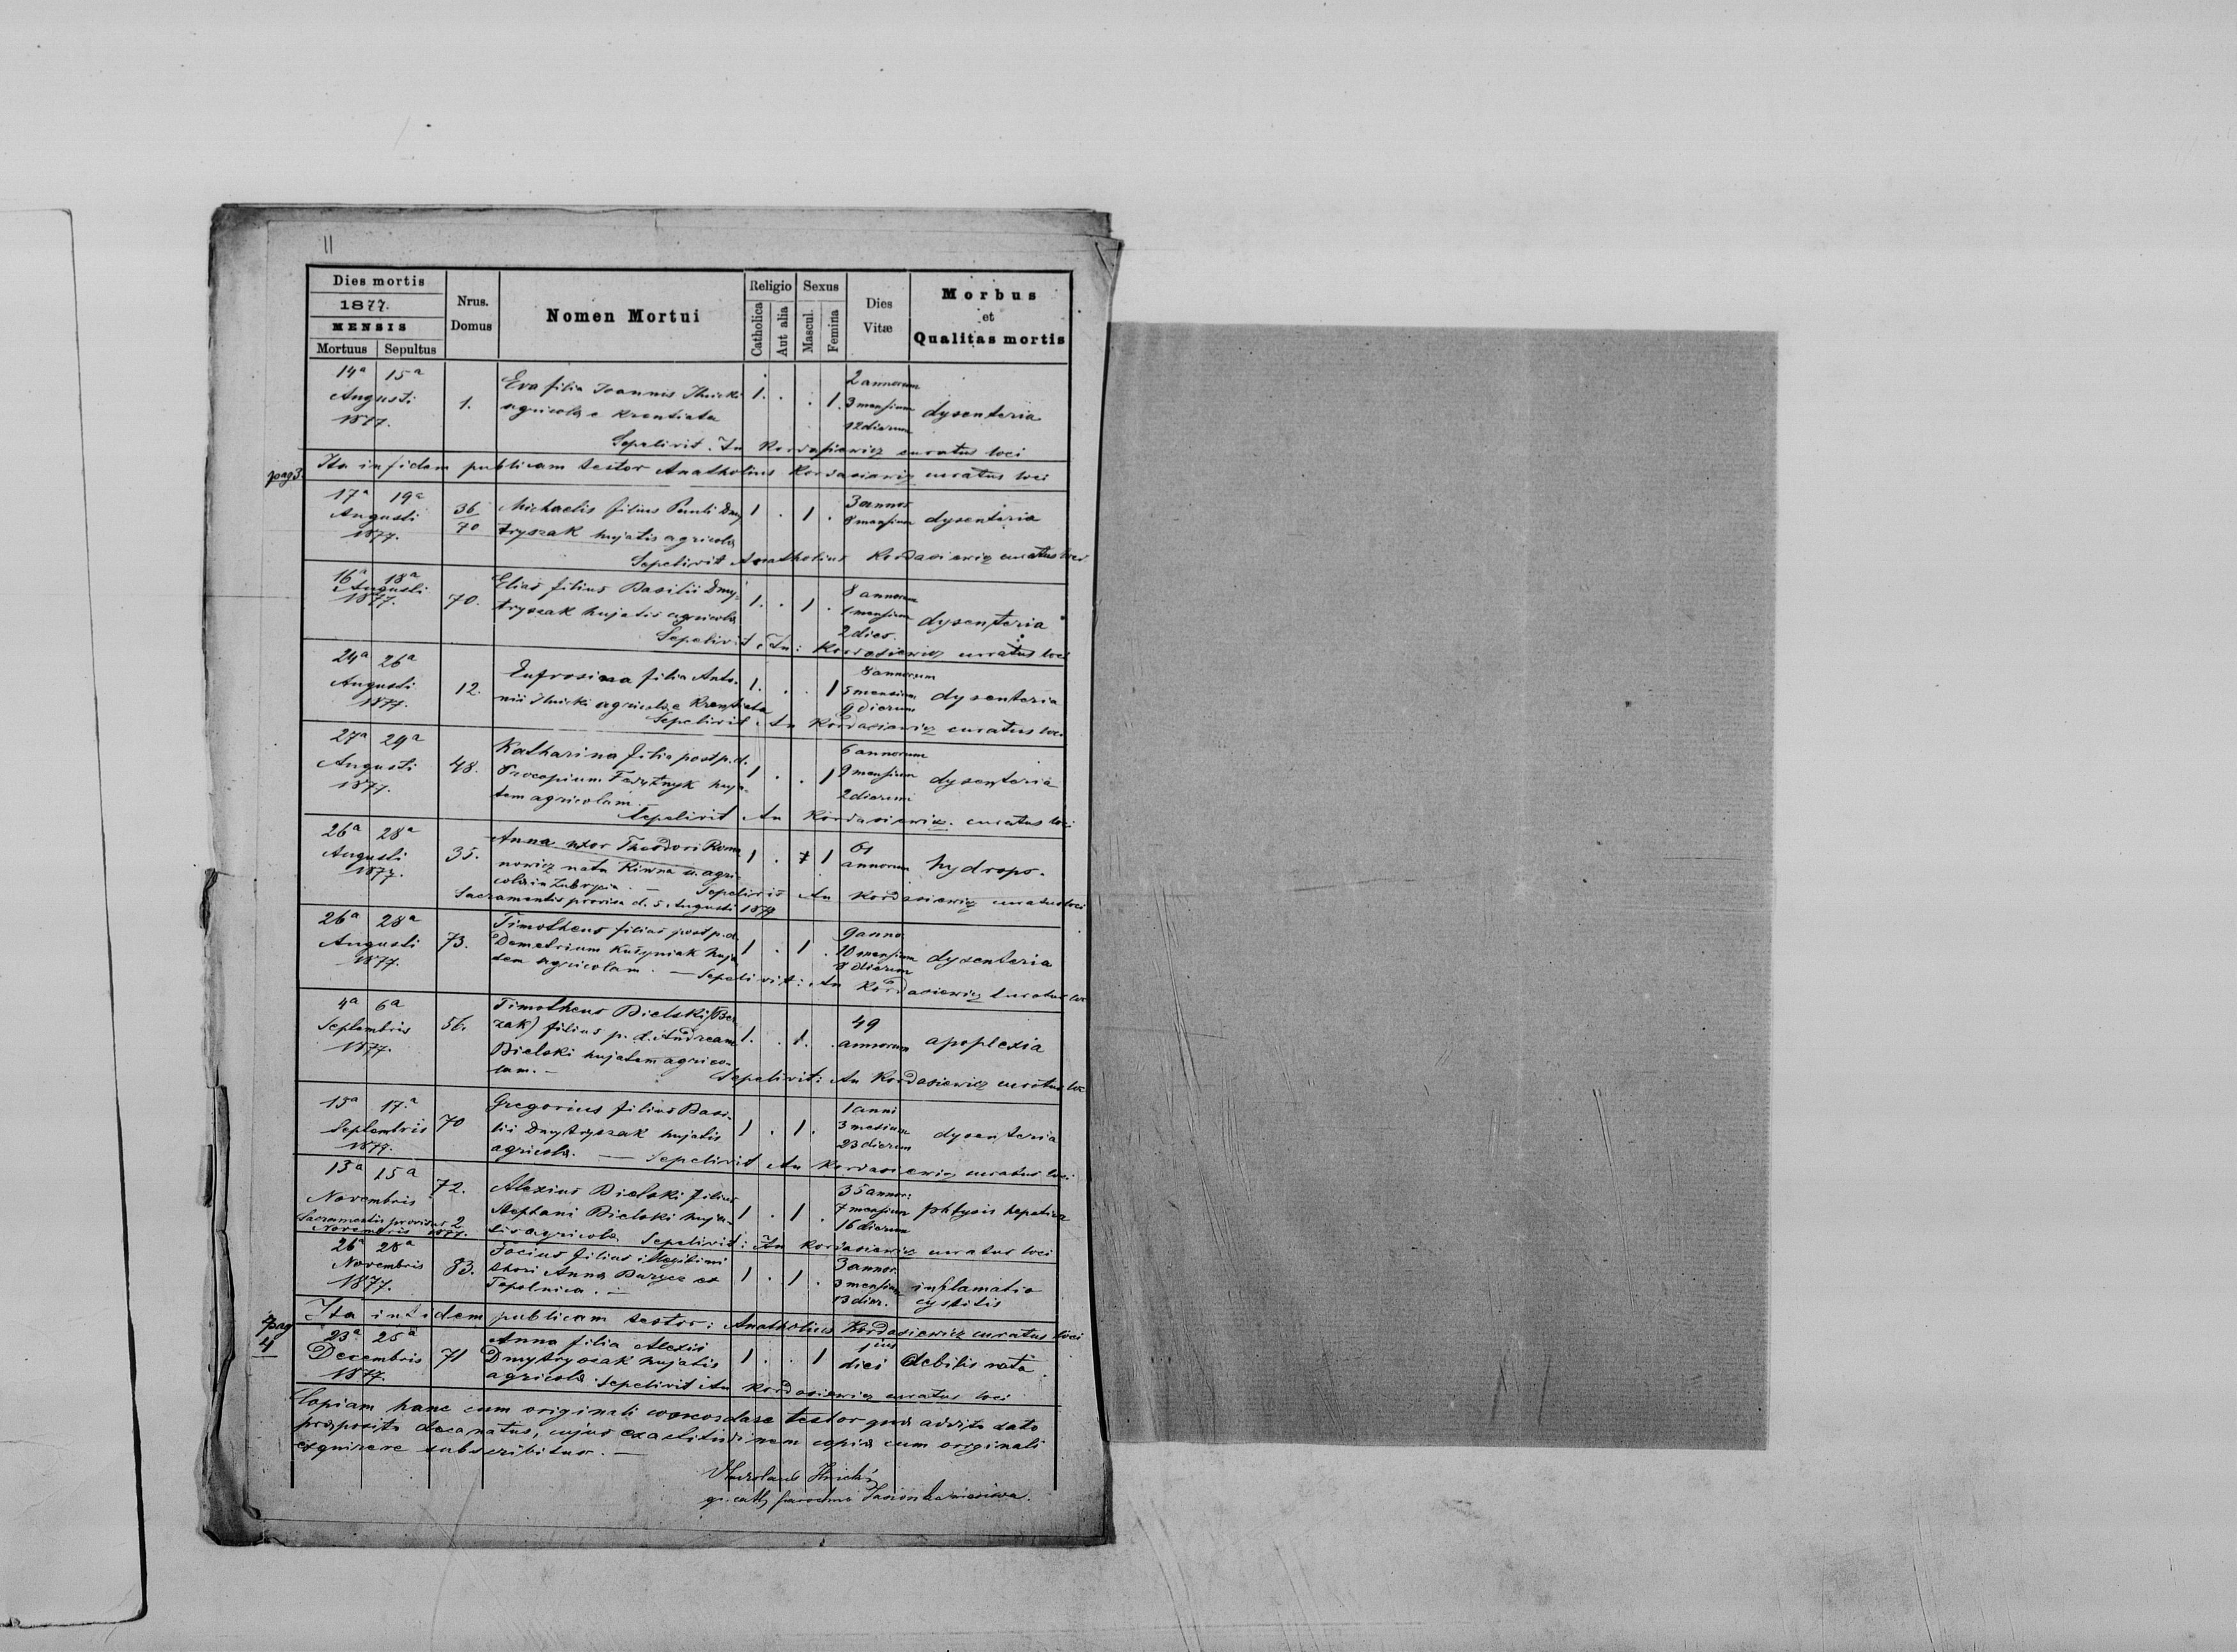 11
Dies mortis
1877.
MENSIS
Mortuus Sepultus
Nrus.
Domus
Nomen Mortui
Religio
Catholica
Aut alia
Sexus
Mascul.
Femina
Dies
Vitæ
Morbus
et
Qualitas mortis
14ª 15ª
Augusti
1877.
1.
Eva filia Joannis Ilnicki
agricolæ e Krentiata
1. . . 1.
2 annorum
3 mensium
12 dierum
dysenteria
Sepelivit. An Kordasiewicz curatus loci
pag 3.
Ita in fidem publicam testor Anatholius Kordasiewicz curatus loci
17ª 19ª
Augusti
1877.
36
70
Michaelis filius Pauli Dmy
tryszak hujatis agricolæ
1 . 1 .
3 annor
8 mensium
dysenteria
Sepelivit Anatholius Kordasiewicz curatus loci
16ª 18ª
Augusti
1877.
70.
Elias filius Basilii Dmy-
tryszak hujatis agricolæ
1. . 1 .
8 annorum
1 mensium
2 dies.
dysenteria
Sepelivit: An: Kordasiewicz curatus loci
24ª 26ª
Augusti
1877.
12.
Eufrosina filia Anto-
nii Ilnicki agricolæ e Krentiata
1. . . 1
8 annorum
5 mensium
9 dierum
dysenteria
Sepelivit. An Kordasiewicz curatus loci
27ª 29ª
Augusti
1877.
48.
Katharina filia post p. d.
Procopium huja-
tem agricolam. —
1 . . 1
6 annorum
9 mensium
2 dierum
dysenteria
Sepelivit An Kordasiewicz. curatus loci
26ª 28ª
Augusti
1877.
35.
Anna uxor Theodori Roma
nowicz nata agri-
colæ in Zubrycia. — Sepelivit An Kordasiewicz curatus loci
1 . 1
61
annorum
hydrops.
Sacramentis provisa d. 5 Augusti 1877
26ª 28ª
Augusti
1877.
73.
Timotheus filius post p. d.
Demetrium Kuszniak huja
tem agricolam. — Sepelivit: An Kordasiewicz curatus loci
1 . 1 .
9 anno
10 mensium
8 dierum
dysenteria
4ª 6ª
Septembris
1877.
56.
Timotheus Bielski (Ber
zak) filius p. d. Andream
Bielski hujatem agrico-
lam. —
1. . 1. .
49
annorum
apoplexia
Sepelivit: An Kordasiewicz curatus loc
15ª 17.ª
Septembris
1877.
70
Gregorius filius Basi-
lii Dmytryszak hujatis
agricolæ. — Sepelivit An Kordasiewicz curatus loci
1 . 1 .
1 anni
3 mesium
23 dierum
dysenteria
13ª 15ª
Novembris
Sacramentis provisus 2
Novembris 1877.
72.
Alexius Bielski filius
Stephani Bielski huja-
tis agricolæ Sepelivit: An Kordasiewicz curatus loci
1 . 1 .
35 annor:
7 mensium
16 dierum
phtysis hepatica
26ª 28ª
Novembris
1877.
83.
Focius filius illegitimi
thori Annæ ex
Topolnica. —
1 . 1 .
3 annor.
3 mensium
13 dier.
inflamatio
cystitis
Ita in fidem publicam testor: Anatholius Kordasiewicz curatus loci
pag
4
23ª 25ª
Decembris
1877.
71
Anna filia Alexii
Dmytryszak hujatis
agricolæ Sepelivit An Kordasiewicz curatus loci
1 . . 1
1ius
diei
debilis nata
Copiam hanc cum originali concordare testor quæ addito dato
præposito decanatus, cujus exactitudinem copiæ cum originali
exquirere subscribitur. —
Ilnicki
gr. cath. parochus